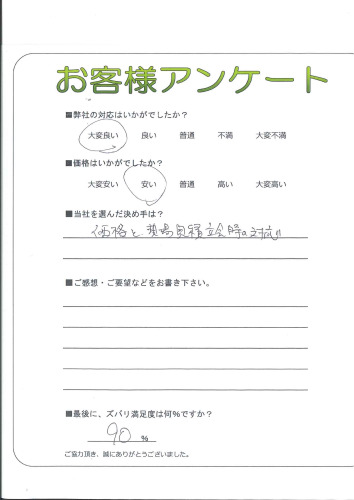 お客様アンケート
■弊社の対応はいかがでしたか?
大変良い 良い 普通 不満 大変不満
■価格はいかがでしたか?
大変安い 安い 普通 高い 大変高い
■当社を選んだ決め手は?
価格と現場見積立会時の対応
■ご感想・ご要望などをお書き下さい。
■最後に、ズバリ満足度は何%ですか?
90 %
ご協力頂き、誠にありがとうございました。